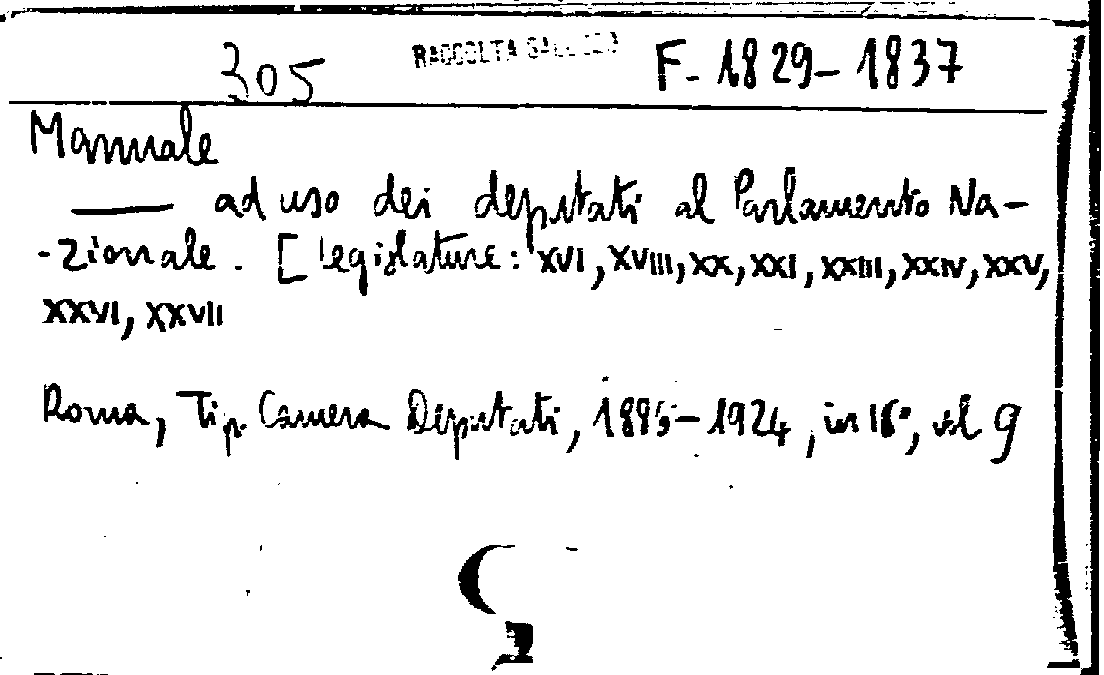 305 RACCOLTA F. 1829-1837
Manuale
—— ad uso dei deputati al Parlamento Na-
-zionale. [Legislature: XVI, XVIII, XX, XXI, XXIII, XXIV, XXV,
XXVI, XXVII
Roma, Tip. Camera Deputati, 1885-1924, in 16°, vol 9